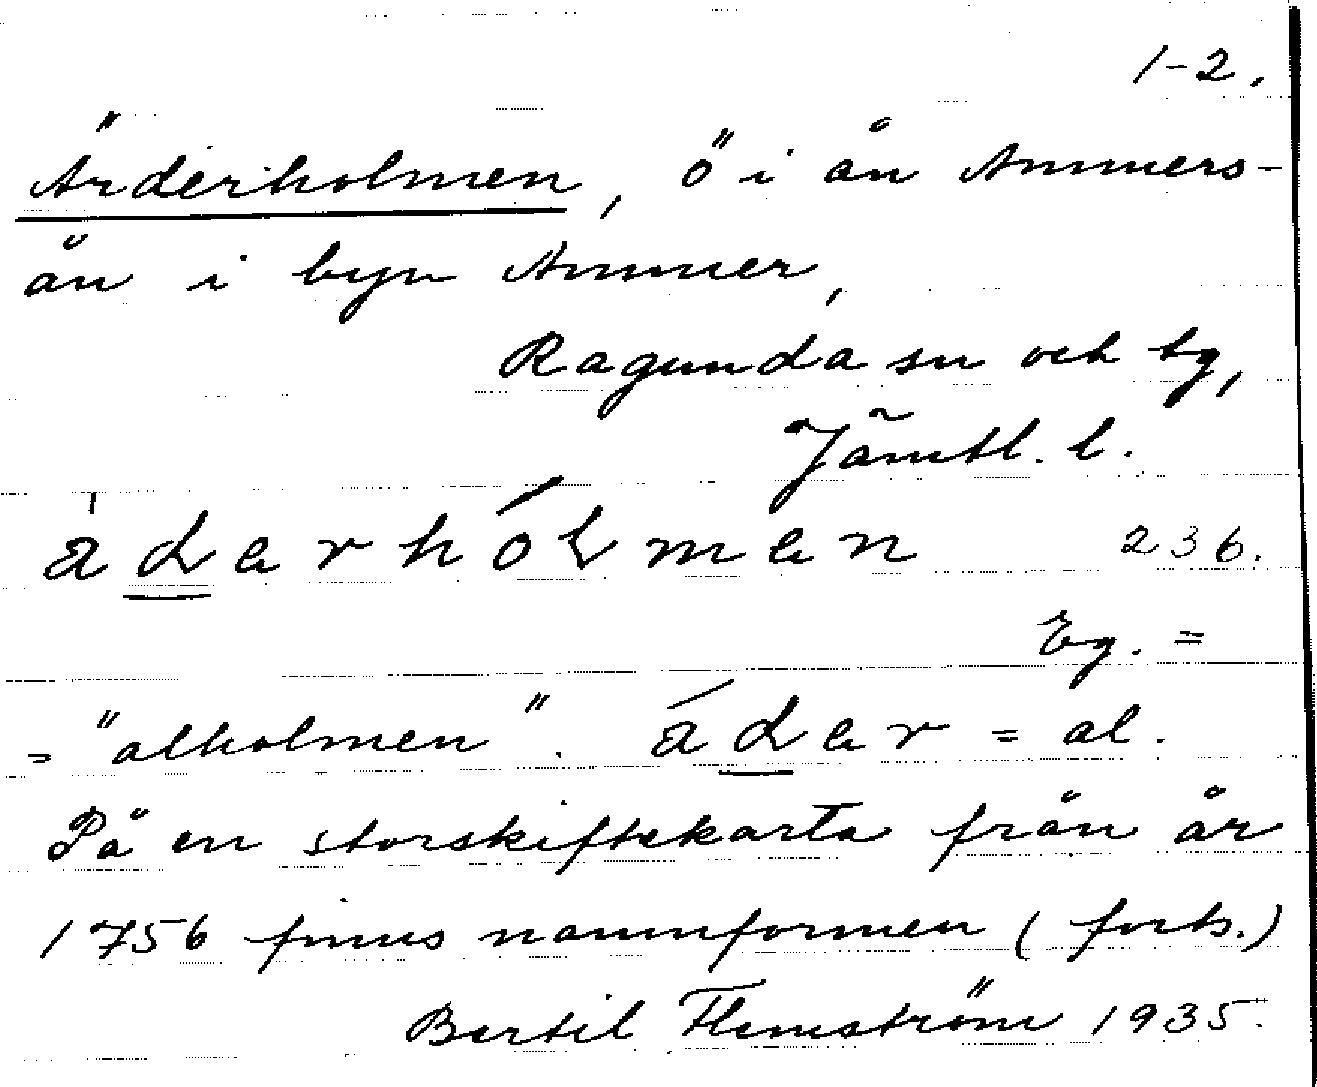 1-2.
Ärderholmen, ö i ån Ammers-
ån i byn Ammer,
Ragunda sn och tg,
Jämtl. l.
aderhólmen 236.
Eg. =
= "alholmen". áder = al.
På en storskifteskarta från år
1756 finns namnformen (forts.)
Bertil Flemström 1935.